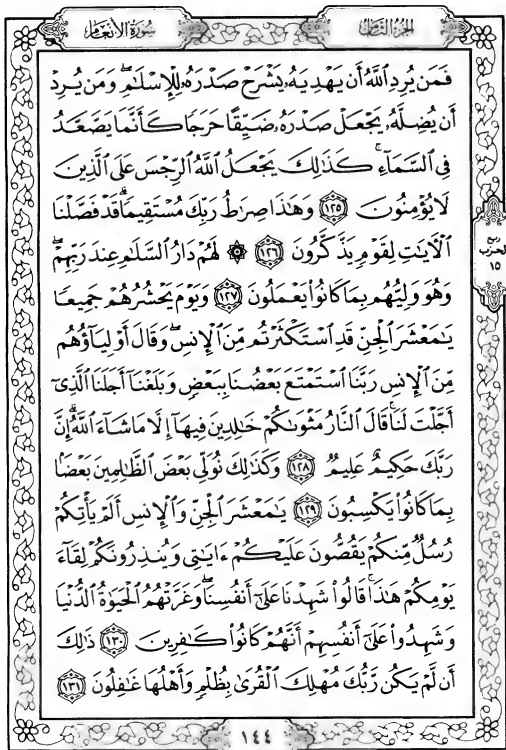 الجزء الثامن
سورة الأنعام
فَمَن يُرِدِ ٱللَّهُ أَن يَهۡدِيَهُۥ يَشۡرَحۡ صَدۡرَهُۥ لِلۡإِسۡلَٰمِۖ وَمَن يُرِدۡ
أَن يُضِلَّهُۥ يَجۡعَلۡ صَدۡرَهُۥ ضَيِّقًا حَرَجٗا كَأَنَّمَا يَصَّعَّدُ
فِي ٱلسَّمَآءِۚ كَذَٰلِكَ يَجۡعَلُ ٱللَّهُ ٱلرِّجۡسَ عَلَى ٱلَّذِينَ
لَا يُؤۡمِنُونَ ١٢٥ وَهَٰذَا صِرَٰطُ رَبِّكَ مُسۡتَقِيمٗاۗ قَدۡ فَصَّلۡنَا
ٱلۡأٓيَٰتِ لِقَوۡمٖ يَذَّكَّرُونَ ١٢٦ ۞ لَهُمۡ دَارُ ٱلسَّلَٰمِ عِندَ رَبِّهِمۡۖ
وَهُوَ وَلِيُّهُم بِمَا كَانُواْ يَعۡمَلُونَ ١٢٧ وَيَوۡمَ يَحۡشُرُهُمۡ جَمِيعٗا
يَٰمَعۡشَرَ ٱلۡجِنِّ قَدِ ٱسۡتَكۡثَرۡتُم مِّنَ ٱلۡإِنسِۖ وَقَالَ أَوۡلِيَآؤُهُم
مِّنَ ٱلۡإِنسِ رَبَّنَا ٱسۡتَمۡتَعَ بَعۡضُنَا بِبَعۡضٖ وَبَلَغۡنَآ أَجَلَنَا ٱلَّذِيٓ
أَجَّلۡتَ لَنَاۚ قَالَ ٱلنَّارُ مَثۡوَىٰكُمۡ خَٰلِدِينَ فِيهَآ إِلَّا مَا شَآءَ ٱللَّهُۗ إِنَّ
رَبَّكَ حَكِيمٌ عَلِيمٞ ١٢٨ وَكَذَٰلِكَ نُوَلِّي بَعۡضَ ٱلظَّٰلِمِينَ بَعۡضَۢا
بِمَا كَانُواْ يَكۡسِبُونَ ١٢٩ يَٰمَعۡشَرَ ٱلۡجِنِّ وَٱلۡإِنسِ أَلَمۡ يَأۡتِكُمۡ
رُسُلٞ مِّنكُمۡ يَقُصُّونَ عَلَيۡكُمۡ ءَايَٰتِي وَيُنذِرُونَكُمۡ لِقَآءَ
يَوۡمِكُمۡ هَٰذَاۚ قَالُواْ شَهِدۡنَا عَلَىٰٓ أَنفُسِنَاۖ وَغَرَّتۡهُمُ ٱلۡحَيَوٰةُ ٱلدُّنۡيَا
وَشَهِدُواْ عَلَىٰٓ أَنفُسِهِمۡ أَنَّهُمۡ كَانُواْ كَٰفِرِينَ ١٣٠ ذَٰلِكَ
أَن لَّمۡ يَكُن رَّبُّكَ مُهۡلِكَ ٱلۡقُرَىٰ بِظُلۡمٖ وَأَهۡلُهَا غَٰفِلُونَ ١٣١
ربع
الحزب
١٥
١٤٤